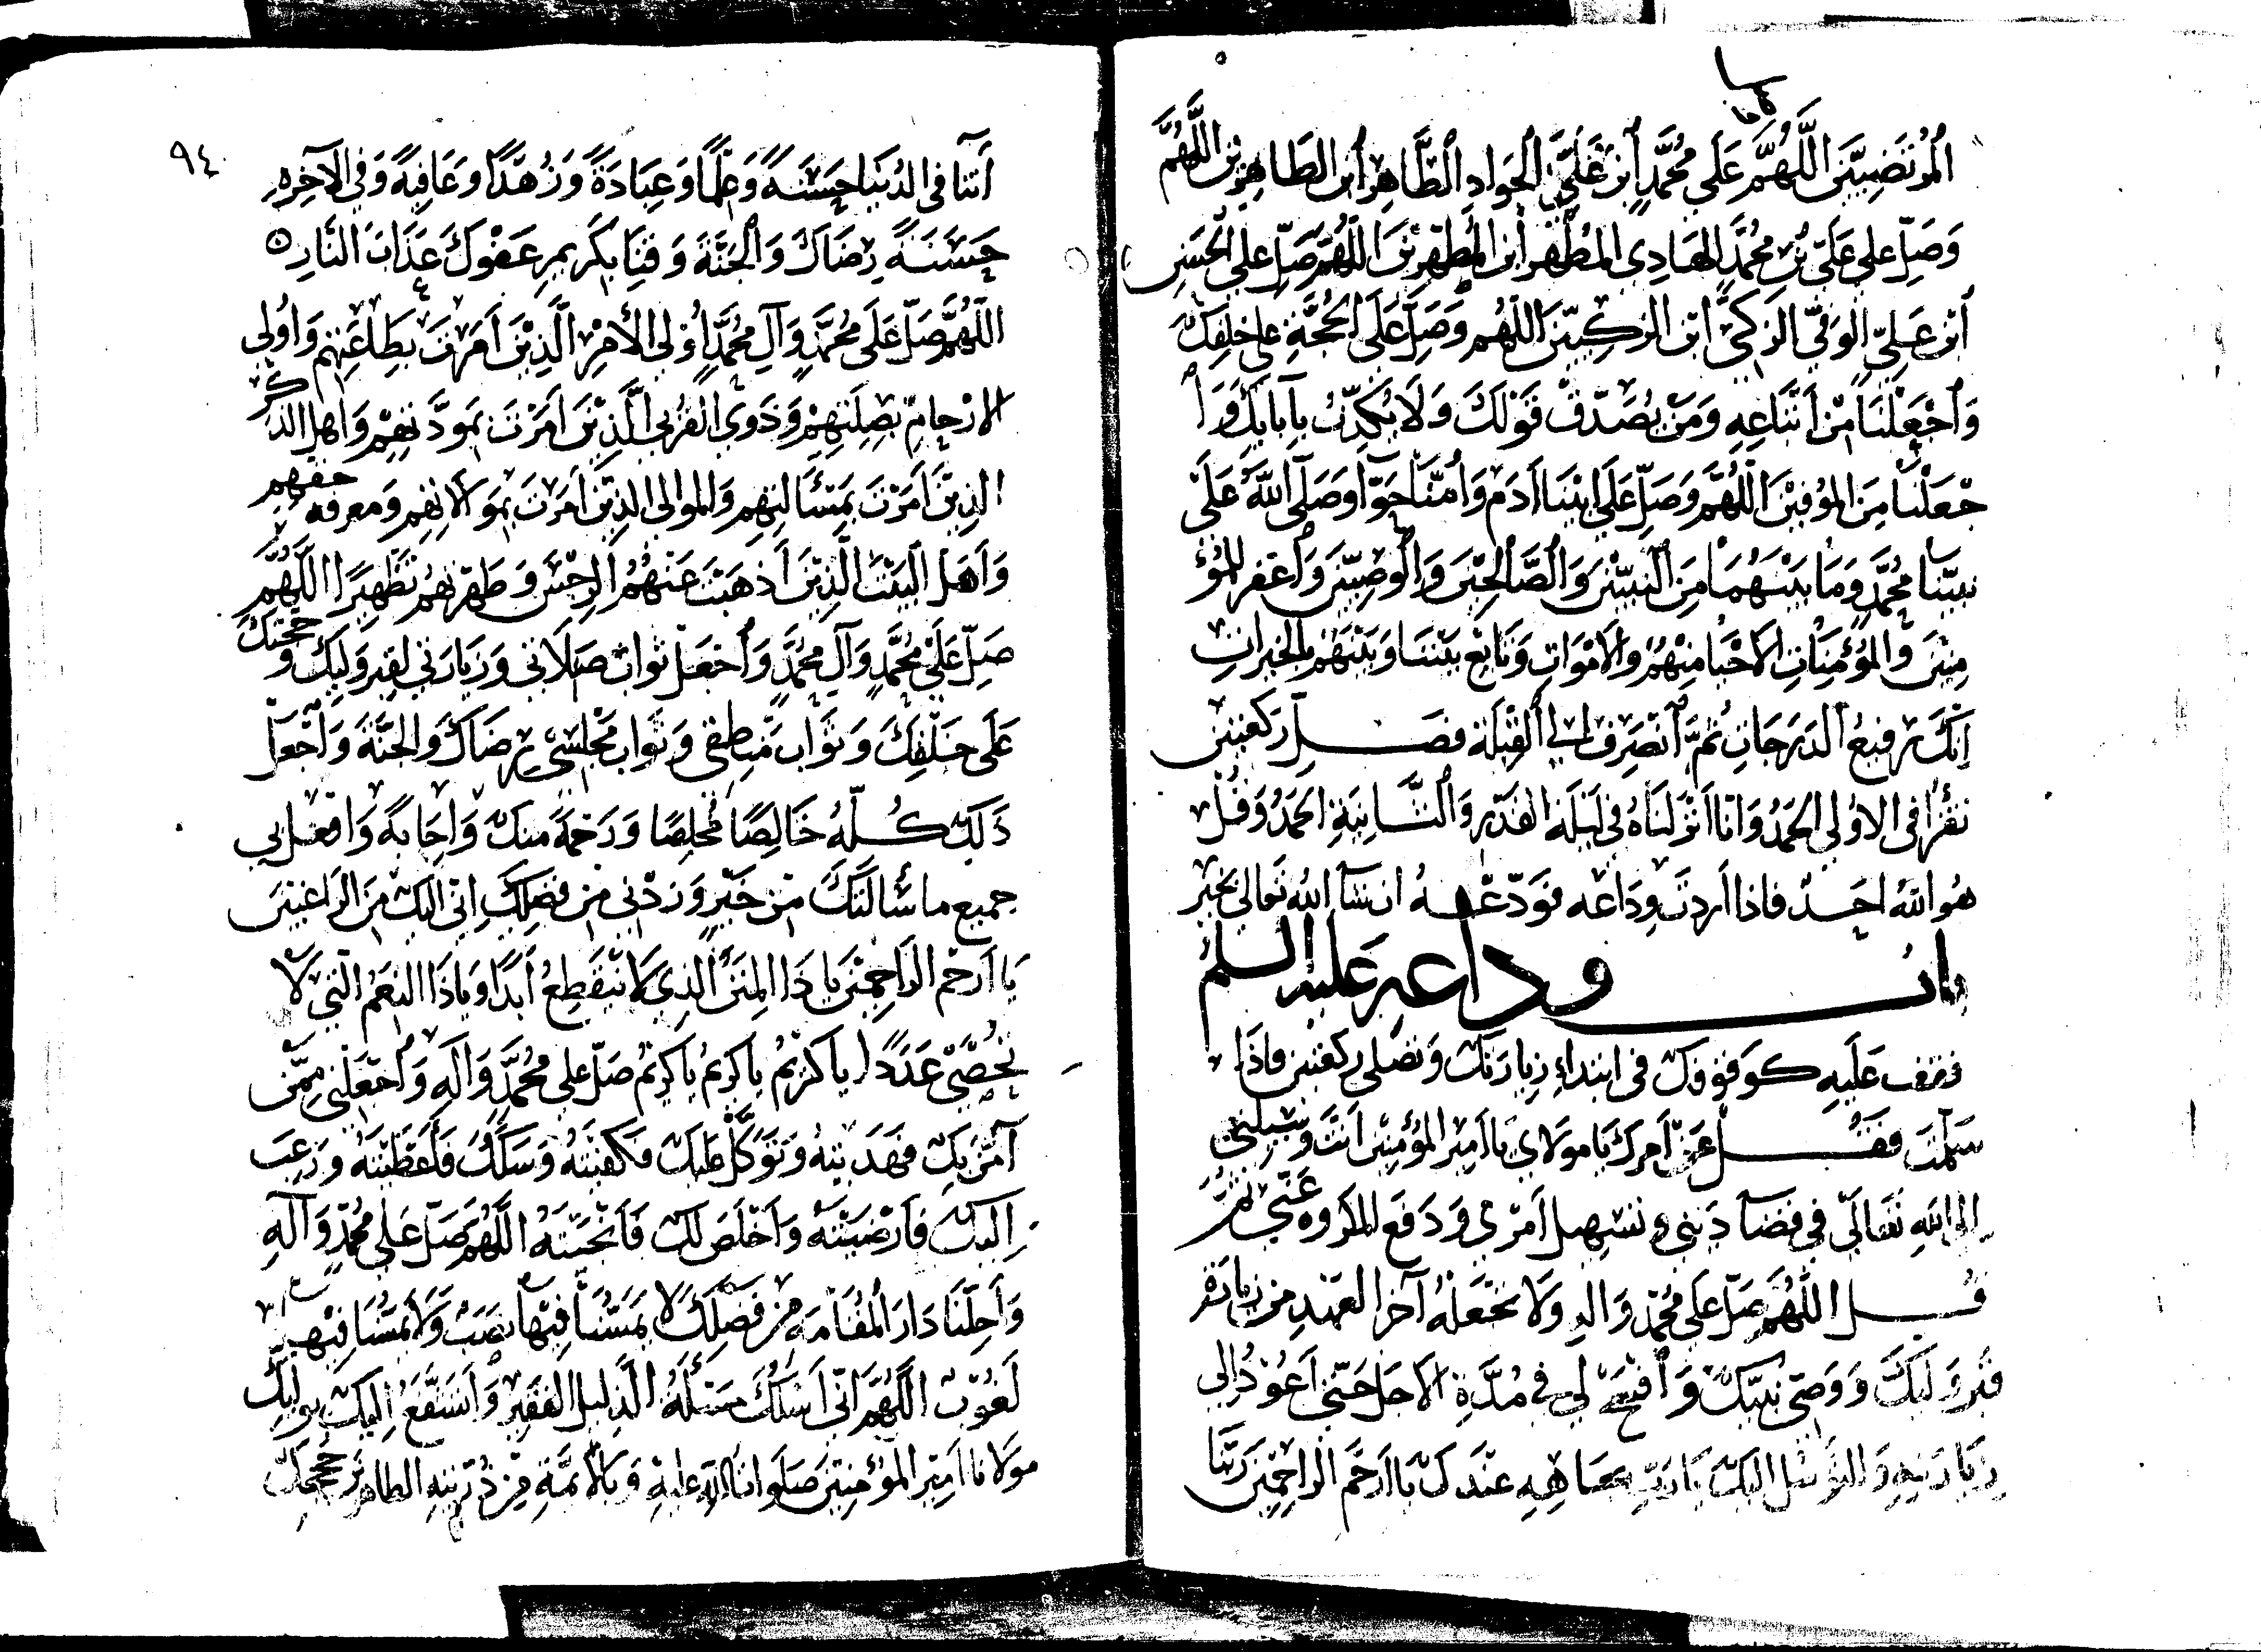 المرتضيين اللهم على محمد ابن علي الجواد الطاهر ابن الطاهرين اللهم
وصل على علي بن محمد الهادي المطهر ابن المطهرين اللهم صل على الحسن
ابن علي الوفي الزكي ابن الزكيين اللهم وصل على الحجة على خلقك
واجعلنا من اتباعه ومن يصدق قولك ولا يكذب بآياتك وا
جعلنا من المؤمنين اللهم وصل على ابينا آدم وأمنا حوآ وصلى الله على
نبينا محمد وما بينهما من النبيين والصالحين والوصيين واغفر للمؤ
منين والمؤمنات الاحيا منهم والاموات وتابع بيننا وبينهم بالخيرات
انك رفيع الدرجات ثم انصرف الى القبلة فصل ركعتين
تقرأ في الاولى الحمد وانا انزلناه في ليلة القدر والثانية الحمد وقل
هو الله احد فاذا اردت وداعه فودعه ان شآ الله تعالى بخير
باب وداعه عليه السلم
فتقف عليه كوقوفك في ابتداء زيارتك وتصلي ركعتين فاذا
سلمت فقل عن امرك يا مولاي يا امير المؤمنين انت وسيلتي
الى الله تعالى في قضآ ديني وتسهيل امري ودفع المكروه عني ثم
قل اللهم صل على محمد واله ولا تجعله آخر العهد من زيارة
قبر وليك ووصي نبيك وافسح لي في مدة الاجل حتى اعوذ الى
زيارته والتوسل اليك يا رب بجاهه عندك يا ارحم الراحمين ربنا
٩٤
آتنا في الدنيا حسنة وعلما وعبادة وزهدا وعافية وفي الآخرة
حسنة رضاك والجنة وقنا بكريم عفوك عذاب النار
اللهم صل على محمد وآل محمد أولي الأمر الذين امرت بطاعتهم واولي
الارحام بصلتهم وذوي القربى الذين امرت بمودتهم واهل الذكر
الذين امرت بمسألتهم والموالي الذين امرت بموالاتهم ومعرفة حقهم
واهل البيت الذين اذهبت عنهم الرجس وطهرتهم تطهيرا اللهم
صل على محمد وآل محمد واجعل ثواب صلاتي وزيارتي لقبر وليك وحجتك
على خلقك وثواب منطقي وثواب مجلسي رضاك والجنة واجعل
ذلك كله خالصا مخلصا ورحمة منك واجابة وافعل بي
جميع ما سألتك من خير وزدني من فضلك اني اليك من الراغبين
يا ارحم الراحمين يا ذا المن الذي لا ينقطع أبدا ويا ذا النعم التي لا
تحصى عددا يا كريم يا كريم يا كريم صل على محمد وآله واجعلني ممن
آمن بك فهديته وتوكل عليك فكفيته وسئلك فأعطيته ورغب
اليك فأرضيته واخلص لك فأنجيته اللهم صل على محمد وآله
واحلنا دار المقامة من فضلك لا يمسنا فيها نصب ولا يمسنا فيها
لغوب اللهم اني اسئلك مسئلة الذليل الفقير واستشفع اليك بوليك
مولانا امير المؤمنين صلوات الله عليه وبالأئمة من ذريته الطاهرين حججك